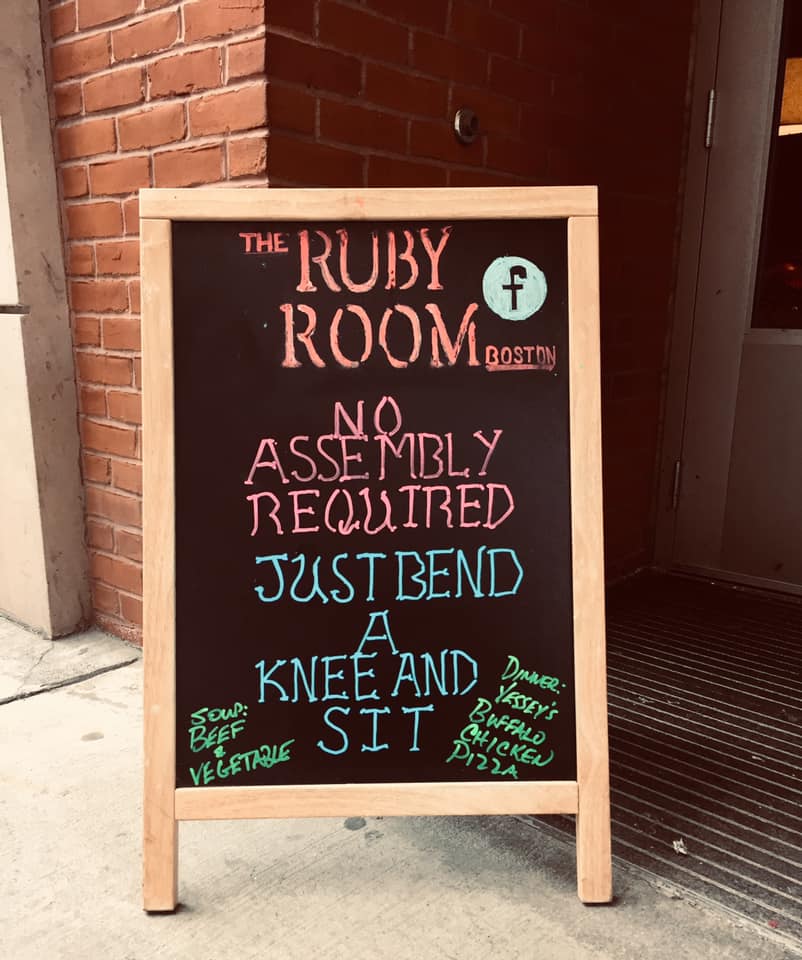 THE RUBY
f
ROOM BOSTON
NO
ASSEMBLY
REQUIRED
JUST BEND
A
KNEE AND
SIT
SOUP:
BEEF
&
VEGETABLE
DINNER:
YESSEY'S
BUFFALO
CHICKEN
PIZZA